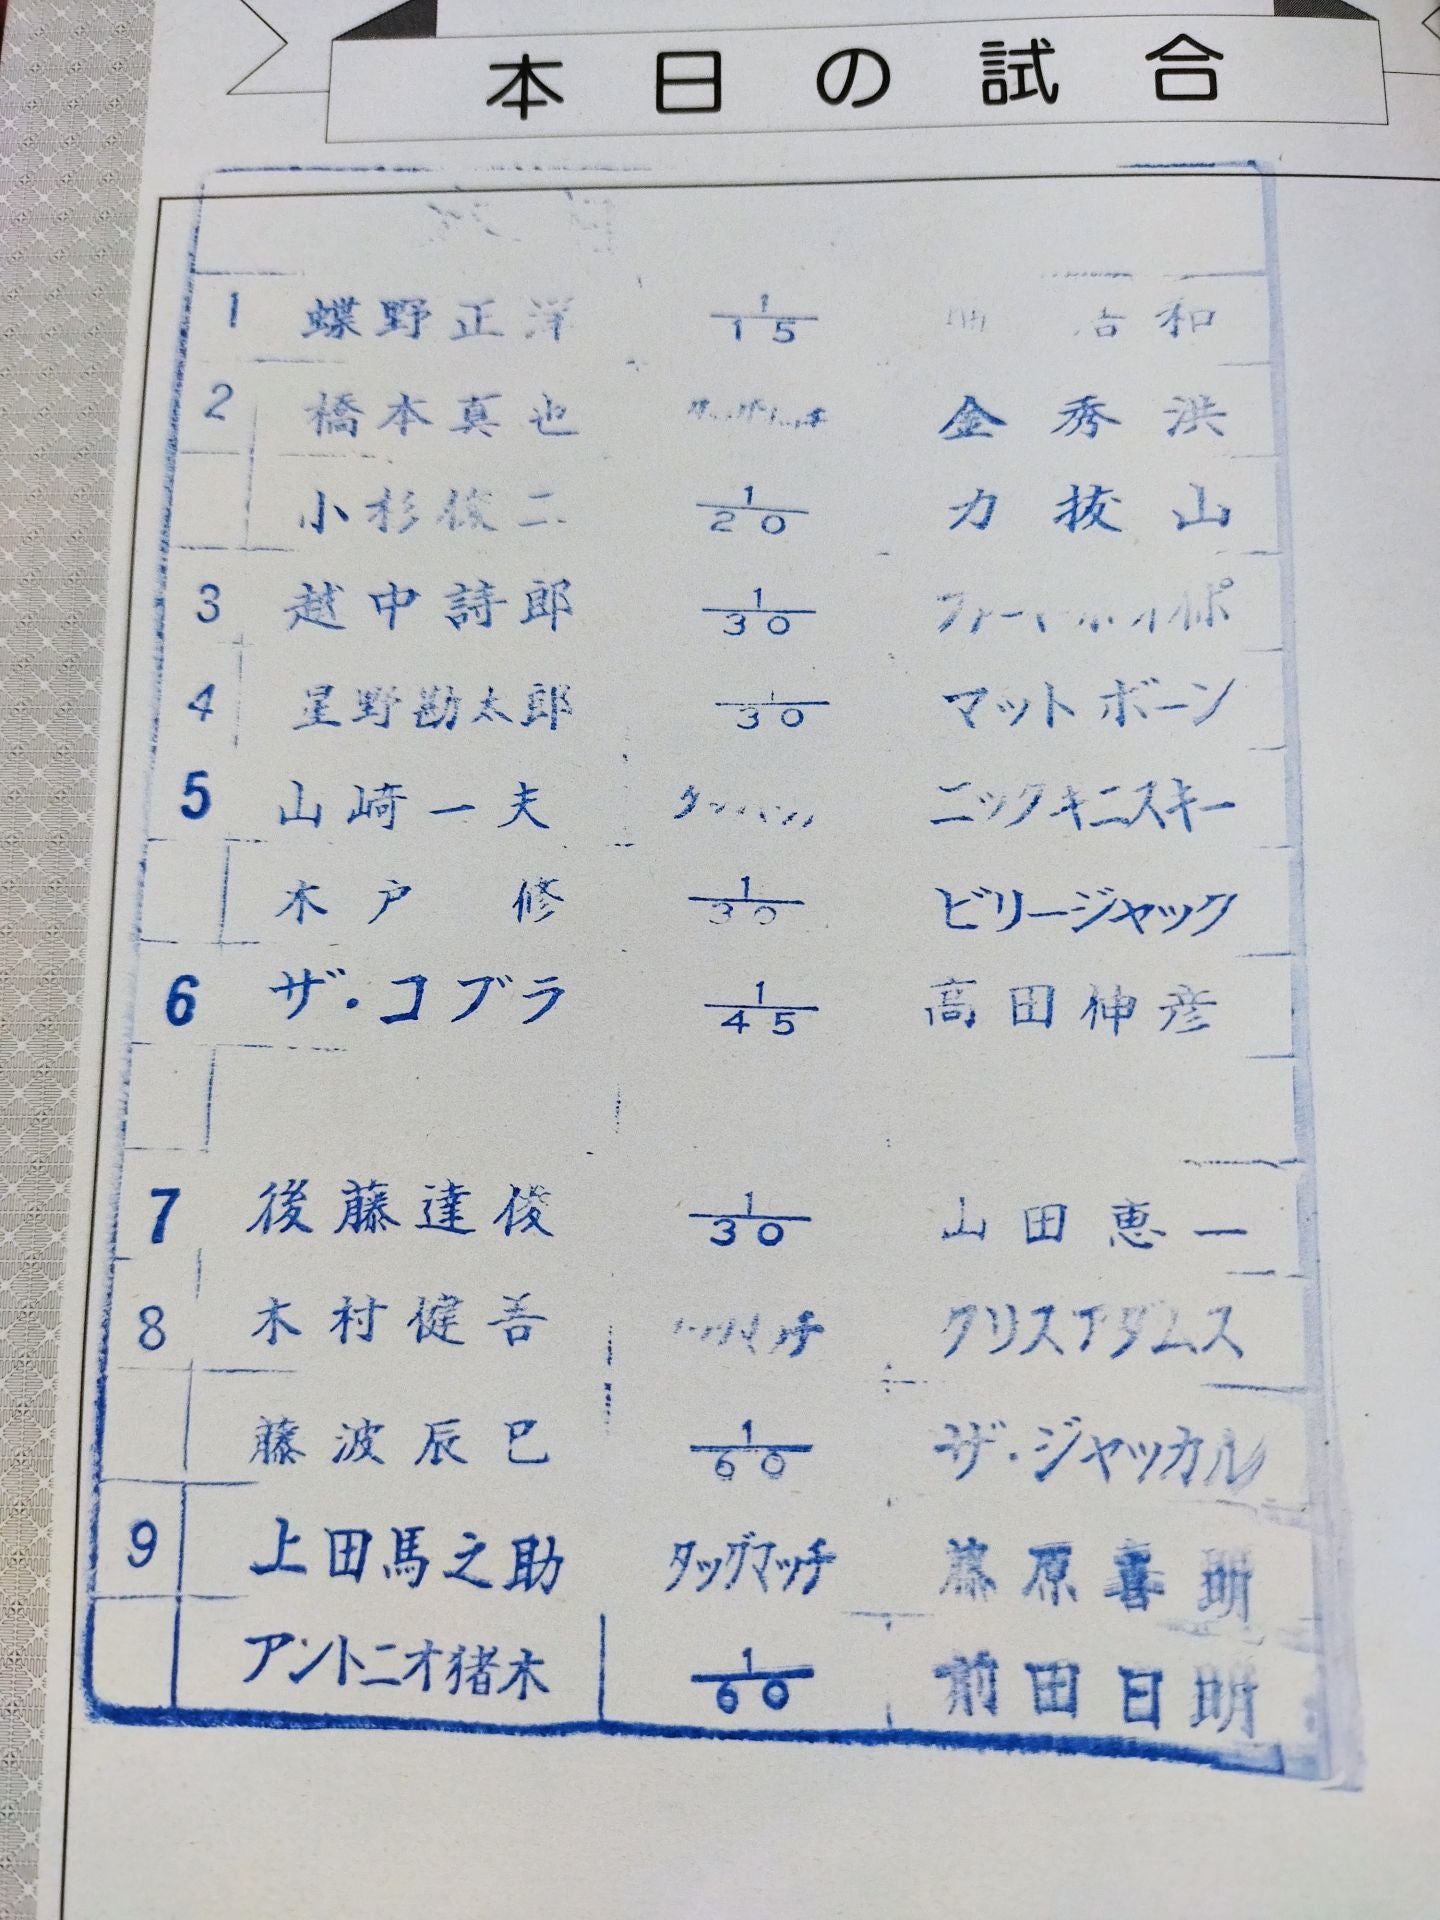 本日の試合
1 蝶野正洋 1/15 和
2 橋本真也 金秀洪
小杉俊二 1/20 力抜山
3 越中詩郎 1/30
4 星野勘太郎 1/30 マットボーン
5 山崎一夫 ニックキニスキー
木戸修 1/30 ビリージャック
6 ザ・コブラ 1/45 高田伸彦
7 後藤達俊 1/30 山田恵一
8 木村健吾 クリスアダムス
藤波辰巳 1/60 ザ・ジャッカル
9 上田馬之助 タッグマッチ 藤原喜明
アントニオ猪木 1/60 前田日明